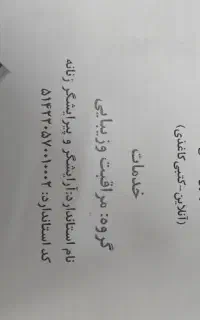 (آنلاین-کتبی کاغذی)
خدمات
گروه: مراقبت و زیبایی
نام استاندارد:آرایشگر و پیرایشگر زنانه
کد استاندارد: ۵۱۴۲۲۰۵۷۰۰۱۰۰۰۲